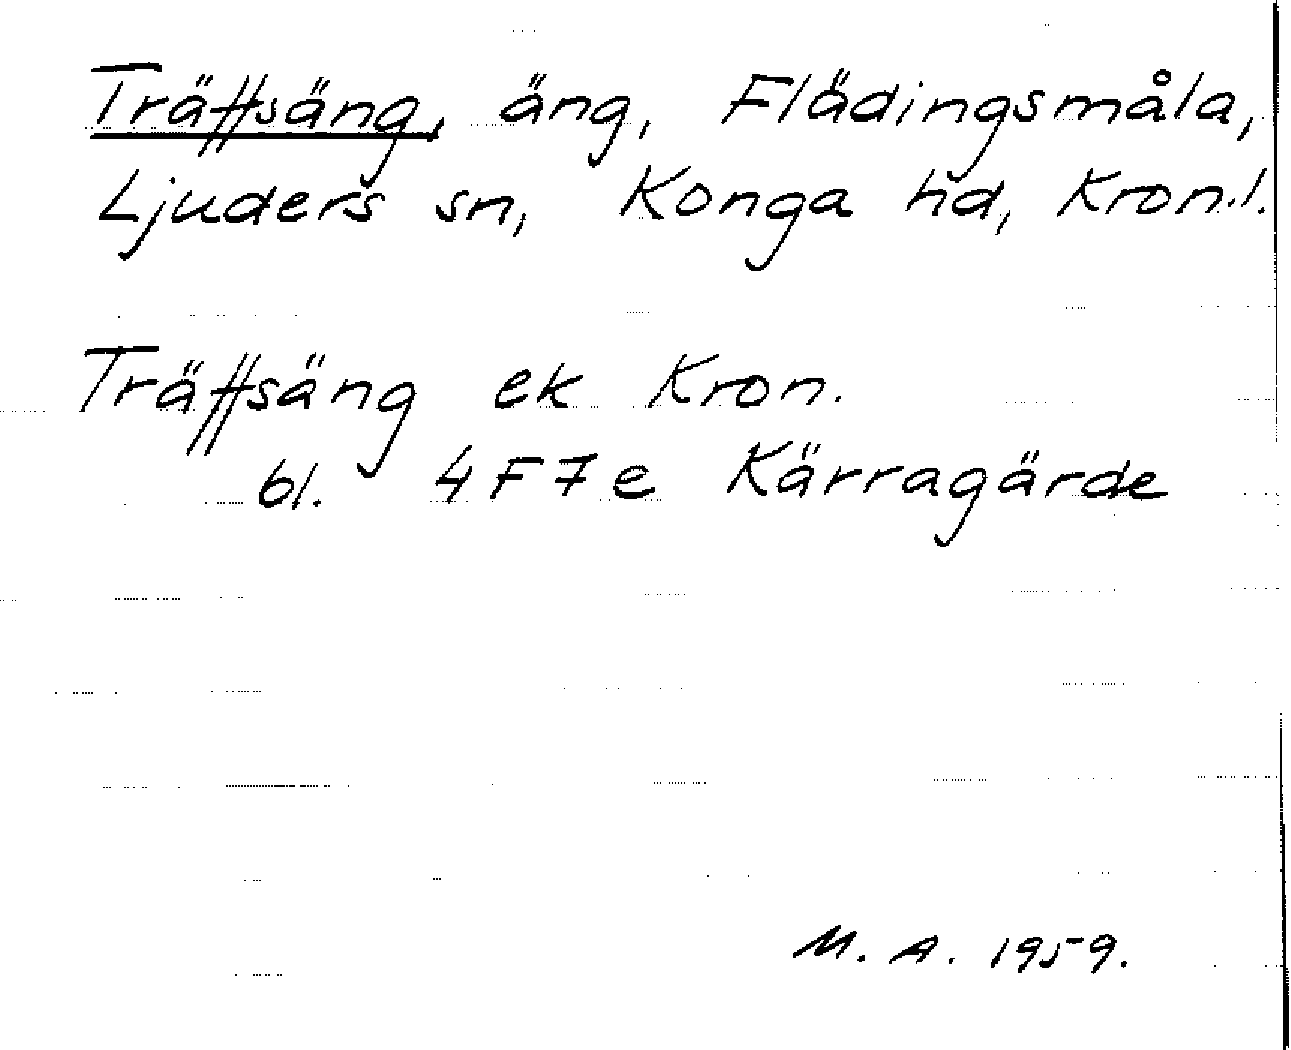 Träffsäng, äng, Flädingsmåla,
Ljuders sn, Konga hd, Kron.l.
Träffsäng ek Kron.
bl. 4F7e Kärragärde
M. A. 1959.